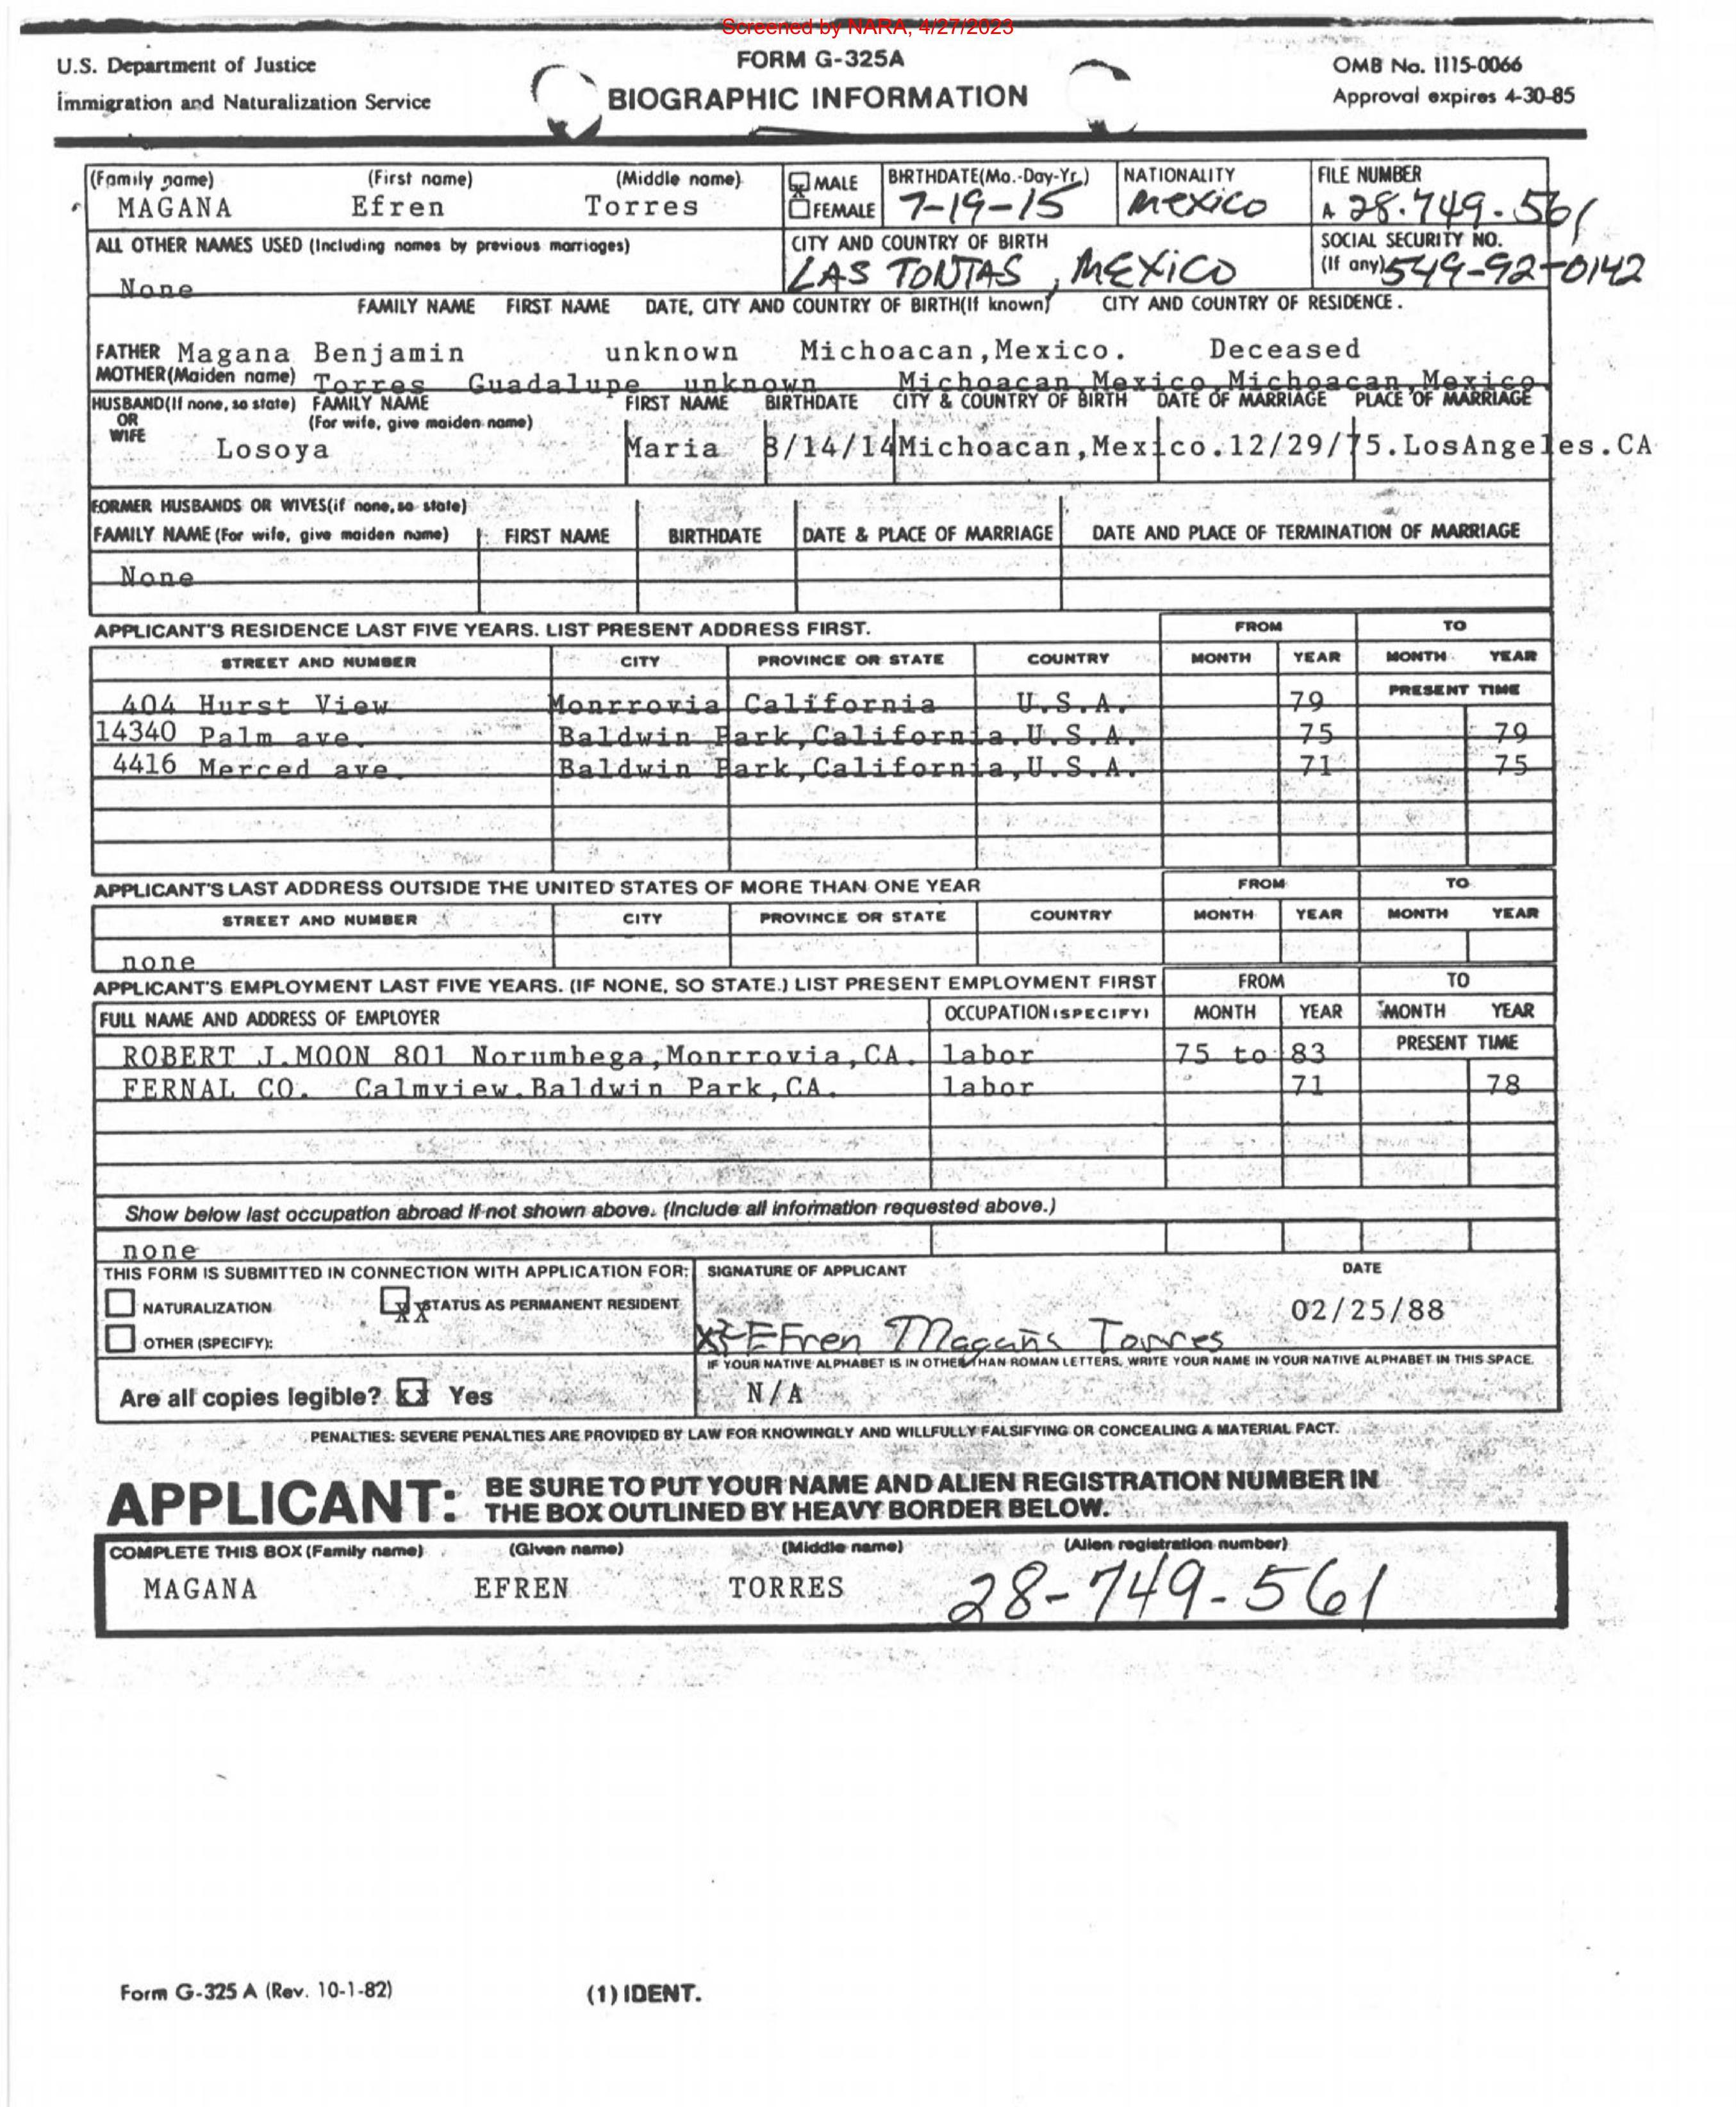 Screened by NARA, 4/27/2023
U.S. Department of Justice
Immigration and Naturalization Service
FORM G-325A
BIOGRAPHIC INFORMATION
OMB No. 1115-0066
Approval expires 4-30-85
(Family name) (First name) (Middle name)
MAGANA Efren Torres
MALE
FEMALE
BIRTHDATE(Mo.-Day-Yr.)
7-19-15
NATIONALITY
Mexico
FILE NUMBER
A 28.749.561
ALL OTHER NAMES USED (Including names by previous marriages)
None
CITY AND COUNTRY OF BIRTH
LAS TONTAS, MEXICO
SOCIAL SECURITY NO.
(If any) 549-92-0142
FAMILY NAME FIRST NAME DATE, CITY AND COUNTRY OF BIRTH(If known) CITY AND COUNTRY OF RESIDENCE.
FATHER Magana Benjamin unknown Michoacan,Mexico. Deceased
MOTHER(Maiden name) Torres Guadalupe unknown Michoacan,Mexico,Michoacan,Mexico
HUSBAND(If none, so state) FAMILY NAME FIRST NAME BIRTHDATE CITY & COUNTRY OF BIRTH DATE OF MARRIAGE PLACE OF MARRIAGE
OR (For wife, give maiden name)
WIFE
Losoya Maria 8/14/14 Michoacan,Mexico.12/29/75.LosAngeles.CA
FORMER HUSBANDS OR WIVES(if none, so state)
FAMILY NAME (For wife, give maiden name) FIRST NAME BIRTHDATE DATE & PLACE OF MARRIAGE DATE AND PLACE OF TERMINATION OF MARRIAGE
None
APPLICANT'S RESIDENCE LAST FIVE YEARS. LIST PRESENT ADDRESS FIRST. FROM TO
STREET AND NUMBER CITY PROVINCE OR STATE COUNTRY MONTH YEAR MONTH YEAR
404 Hurst View Monrrovia California U.S.A. 79 PRESENT TIME
14340 Palm ave. Baldwin Park,California.U.S.A. 75 79
4416 Merced ave. Baldwin Park,California,U.S.A. 71 75
APPLICANT'S LAST ADDRESS OUTSIDE THE UNITED STATES OF MORE THAN ONE YEAR FROM TO
STREET AND NUMBER CITY PROVINCE OR STATE COUNTRY MONTH YEAR MONTH YEAR
none
APPLICANT'S EMPLOYMENT LAST FIVE YEARS. (IF NONE, SO STATE.) LIST PRESENT EMPLOYMENT FIRST FROM TO
FULL NAME AND ADDRESS OF EMPLOYER OCCUPATION (SPECIFY) MONTH YEAR MONTH YEAR
ROBERT J.MOON 801 Norumbega,Monrrovia,CA. labor 75 to 83 PRESENT TIME
FERNAL CO. Calmview.Baldwin Park,CA. labor 71 78
Show below last occupation abroad if not shown above. (Include all information requested above.)
none
THIS FORM IS SUBMITTED IN CONNECTION WITH APPLICATION FOR: SIGNATURE OF APPLICANT DATE
NATURALIZATION XX STATUS AS PERMANENT RESIDENT
02/25/88
OTHER (SPECIFY):
X Efren Magaña Torres
IF YOUR NATIVE ALPHABET IS IN OTHER THAN ROMAN LETTERS, WRITE YOUR NAME IN YOUR NATIVE ALPHABET IN THIS SPACE.
Are all copies legible? XX Yes
N/A
PENALTIES: SEVERE PENALTIES ARE PROVIDED BY LAW FOR KNOWINGLY AND WILLFULLY FALSIFYING OR CONCEALING A MATERIAL FACT.
APPLICANT: BE SURE TO PUT YOUR NAME AND ALIEN REGISTRATION NUMBER IN
THE BOX OUTLINED BY HEAVY BORDER BELOW.
COMPLETE THIS BOX (Family name) (Given name) (Middle name) (Alien registration number)
MAGANA EFREN TORRES 28-749-561
Form G-325 A (Rev. 10-1-82) (1) IDENT.